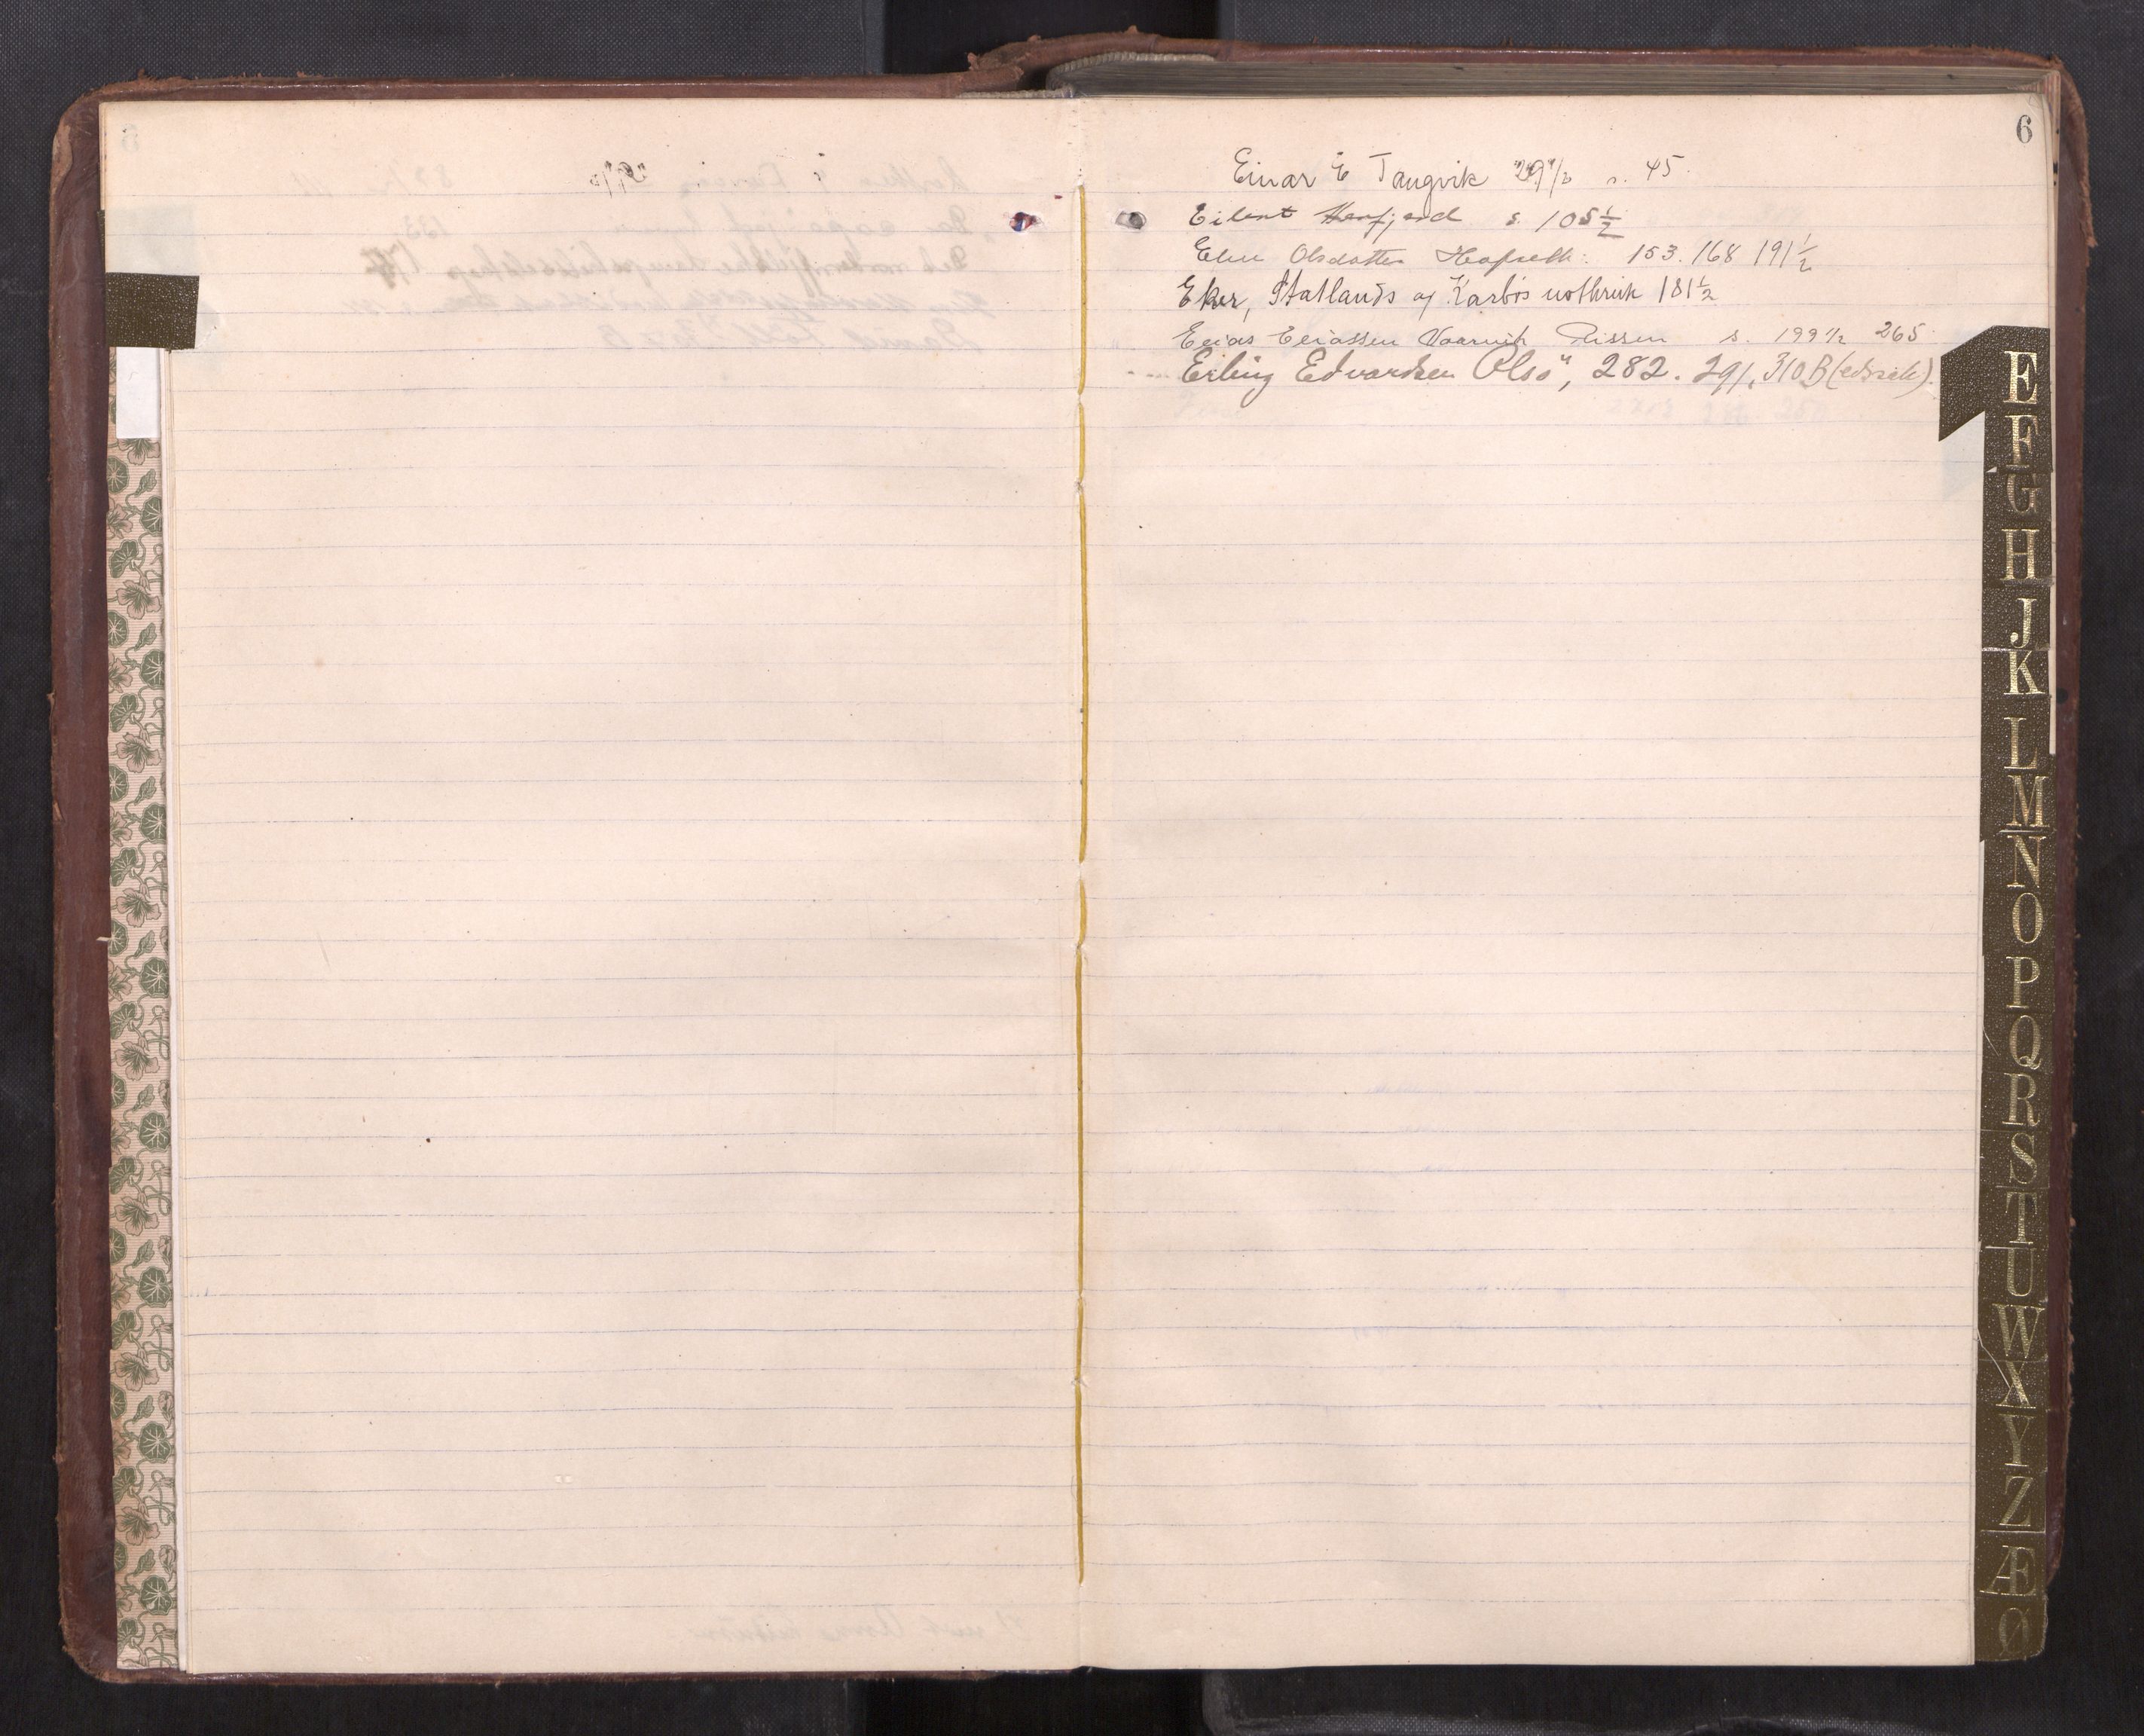 6
Einar E Tangvik s. 45.
Eilert s. 105½
Elen Olsdatter 153. 168 191½
Eker, Statlands og Karbös notbruk 181½
Elias Eliassen Vaarvik Rissen s. 199½ 265
Erling Edvardsen Olsö", 282. 291. 310B (edsrett).
E
F
G
H
J
K
L
M
N
O
P
Q
R
S
T
U
W
X
Y
Z
Æ
Ø